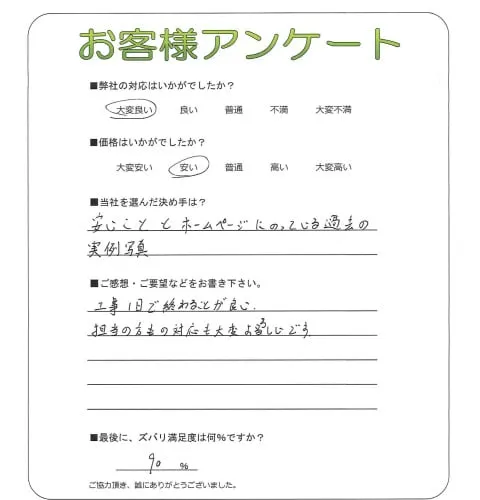 お客様アンケート
■弊社の対応はいかがでしたか?
大変良い 良い 普通 不満 大変不満
■価格はいかがでしたか?
大変安い 安い 普通 高い 大変高い
■当社を選んだ決め手は?
安いこと と ホームページにのっている過去の
実例写真
■ご感想・ご要望などをお書き下さい。
工事1日で終わることが良い.
担当の方の対応も大変よろしいです
■最後に、ズバリ満足度は何%ですか?
90 %
ご協力頂き、誠にありがとうございました。